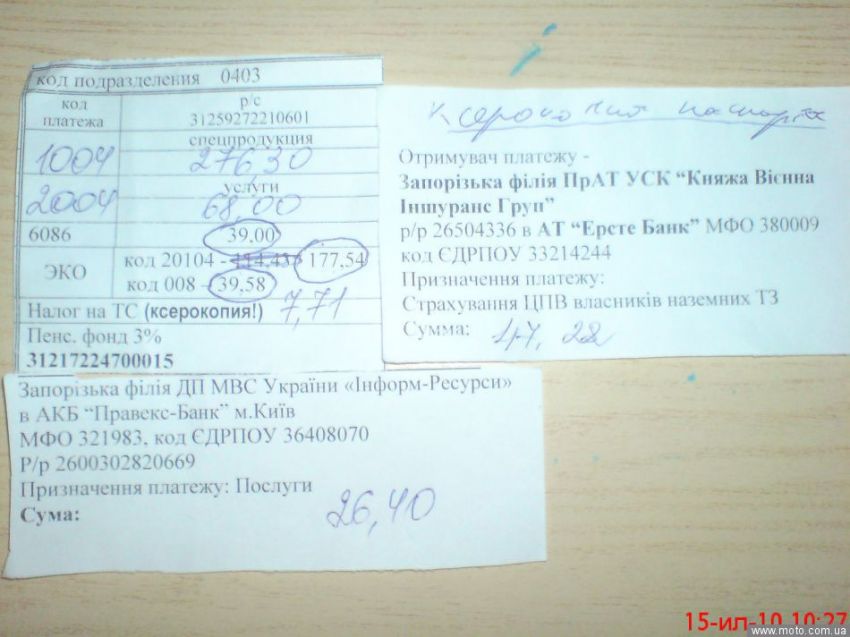 код подразделения 0403
код платежа
р/с 31259272210601
спецпродукция
1004 276,30
услуги
2004 68,00
6086 39.00
ЭКО
код 20104 - 114,43 177,54
код 008 - 39,58
Налог на ТС (ксерокопия!) 7,71
Пенс. фонд 3%
31217224700015
Ксерокопия
Отримувач платежу -
Запорізька філія ПрАТ УСК “Княжа Вієнна
Іншуранс Груп”
р/р 26504336 в АТ “Ерсте Банк” МФО 380009
код ЄДРПОУ 33214244
Призначення платежу:
Страхування ЦПВ власників наземних ТЗ
Сумма: 47,22
Запорізька філія ДП МВС України «Інформ-Ресурси»
в АКБ “Правекс-Банк” м.Київ
МФО 321983, код ЄДРПОУ 36408070
Р/р 2600302820669
Призначення платежу: Послуги
Сума: 26,40
15-ил-10 10:27
www.moto.com.ua